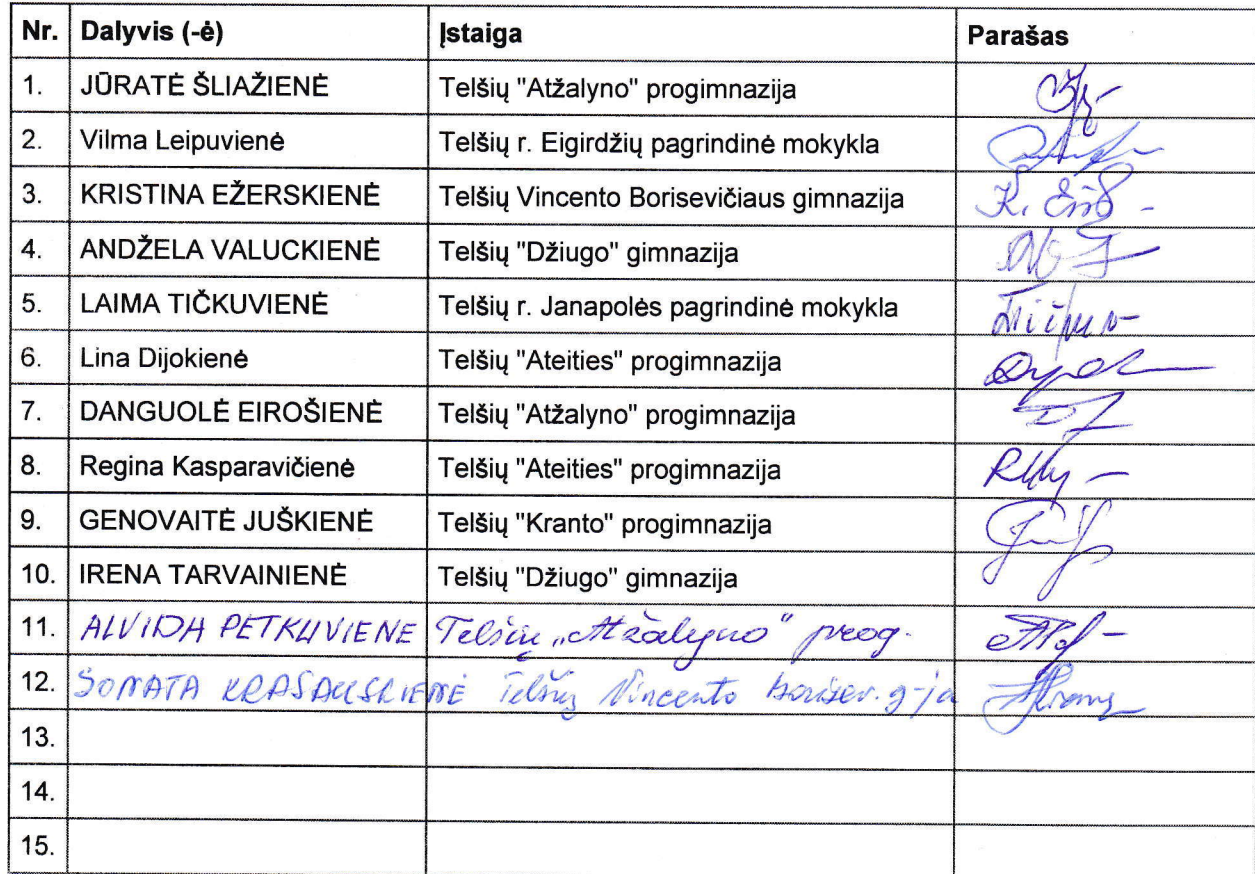 Nr. Dalyvis (-ė) Įstaiga Parašas
1. JŪRATĖ ŠLIAŽIENĖ Telšių "Atžalyno" progimnazija
2. Vilma Leipuvienė Telšių r. Eigirdžių pagrindinė mokykla
3. KRISTINA EŽERSKIENĖ Telšių Vincento Borisevičiaus gimnazija
4. ANDŽELA VALUCKIENĖ Telšių "Džiugo" gimnazija
5. LAIMA TIČKUVIENĖ Telšių r. Janapolės pagrindinė mokykla
6. Lina Dijokienė Telšių "Ateities" progimnazija
7. DANGUOLĖ EIROŠIENĖ Telšių "Atžalyno" progimnazija
8. Regina Kasparavičienė Telšių "Ateities" progimnazija
9. GENOVAITĖ JUŠKIENĖ Telšių "Kranto" progimnazija
10. IRENA TARVAINIENĖ Telšių "Džiugo" gimnazija
11. ALVIDA PETKUVIENE Telšių „Atžalyno" prog.
12. SONATA KRASAUSKIENĖ Telšių Vincento Borisev. g-ja
13.
14.
15.